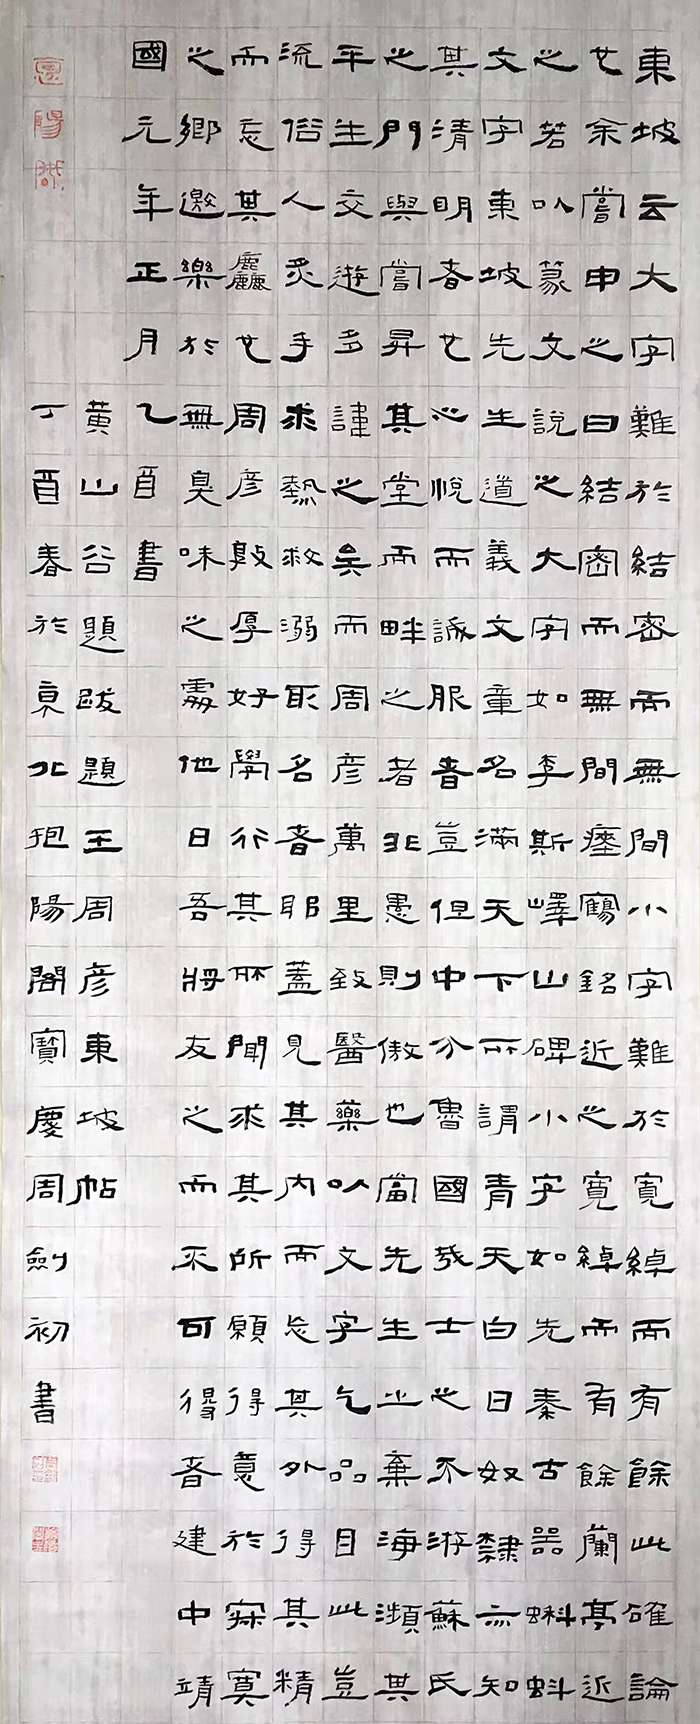 東坡云大字難於結密而無間小字難於寬綽而有餘此確論
也余嘗申之曰結密而無間瘞鶴銘近之寬綽而有餘蘭亭近
之若以篆文說之大字如李斯嶧山碑小字如先秦古器蝌蚪
文字東坡先生道義文章名滿天下所謂青天白日奴隸亦知
其清明者也心悅而誠服者豈但中分魯國哉士之不游蘇氏
之門與嘗昇其堂而畔之者非愚則傲也當先生之棄海瀕其
平生交遊多諱之矣而周彥萬里致醫藥以文字乞品目此豈
流俗人炙手求熱救溺取名者耶蓋見其內而忘其外得其精
而忘其麤也周彥敦厚好學行其所聞求其所願得意於寂寞
之鄉邀樂於無臭味之處他日吾將友之而不可得者建中靖
國元年正月乙酉書
黃山谷題跋題王周彥東坡帖
丁酉春於京北抱陽閣寶慶周劍初書